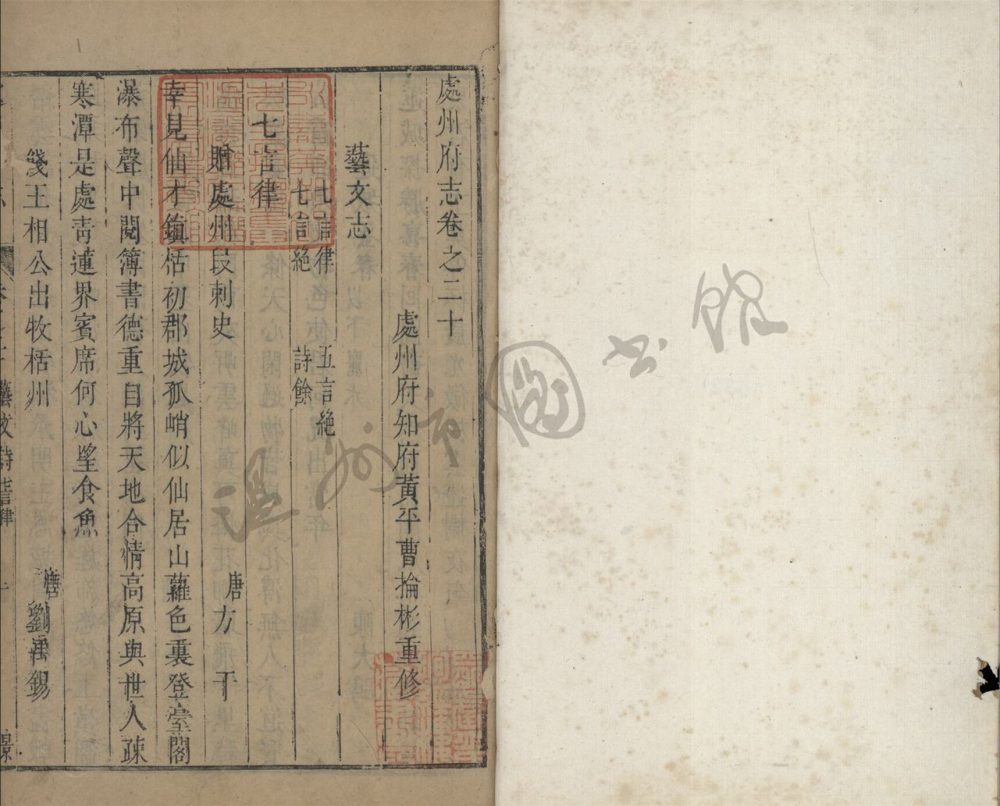 處州府志卷之二十
處州府知府黃平曹掄彬重修
藝文志
七言律 五言絶
七言絶 詩餘
七言律
贈處州段刺史 唐 方干
幸見仙才鎮栝初郡城孤峭似仙居山蘿色裏登臺閣
瀑布聲中閱簿書德重自將天地合情高原與世人疎
寒潭是處青蓮界賓席何心望食魚
箋王相公出牧栝州 唐 劉禹錫
藝文詩七言律
温州市圖书館